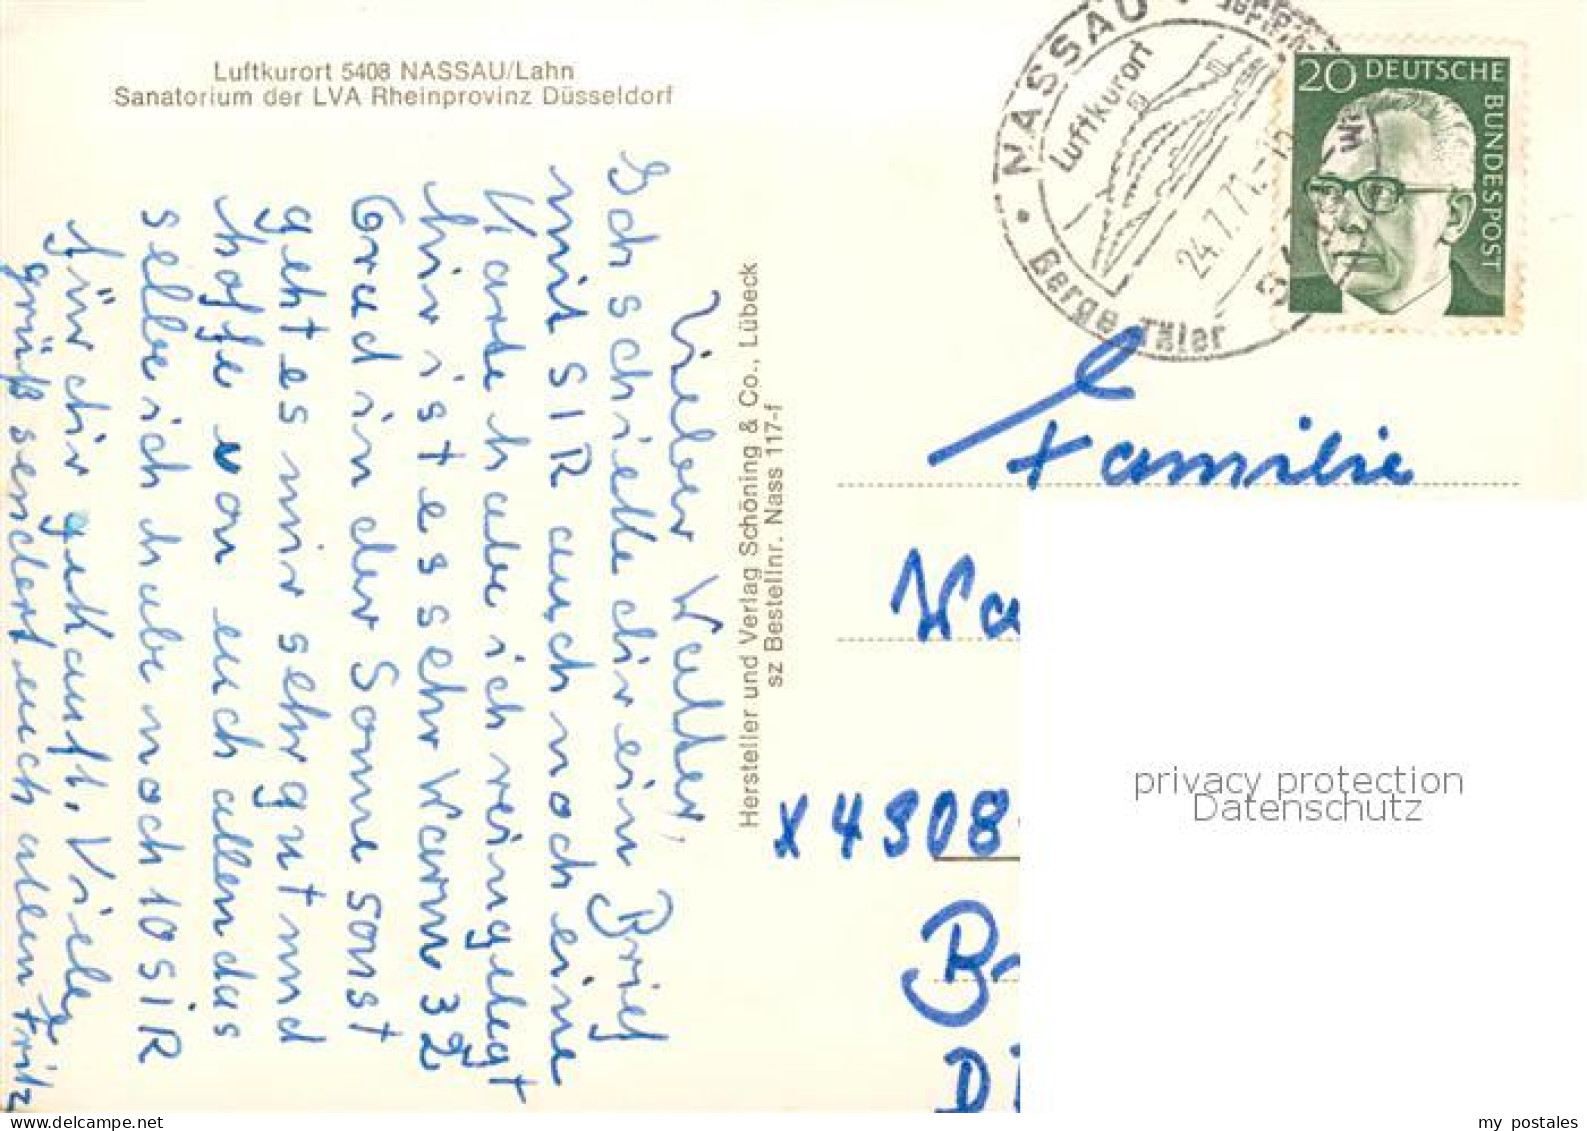 Luftkurort 5408 NASSAU/Lahn
Sanatorium der LVA Rheinprovinz Düsseldorf
Lieber Walter,
Ich schicke dir ein Brief
mit SIR auch noch eine
Karte habe ich reingelegt
hir ist es sehr Warm 32
Grad in der Sonne sonst
geht es mir sehr gut und
hoffe von euch allen das
selbe ich habe noch 10 SIR
für dir gekauft. Viele
grüß sendet euch allen Fritz
Hersteller und Verlag Schöning & Co., Lübeck
sz Bestellnr. Nass 117-f
NASSAU
Luftkurort
24.7.71.-18
Berge Täler
20 DEUTSCHE
BUNDESPOST
Familie
Wa
X 4308
B
D
privacy protection
Datenschutz
my postales